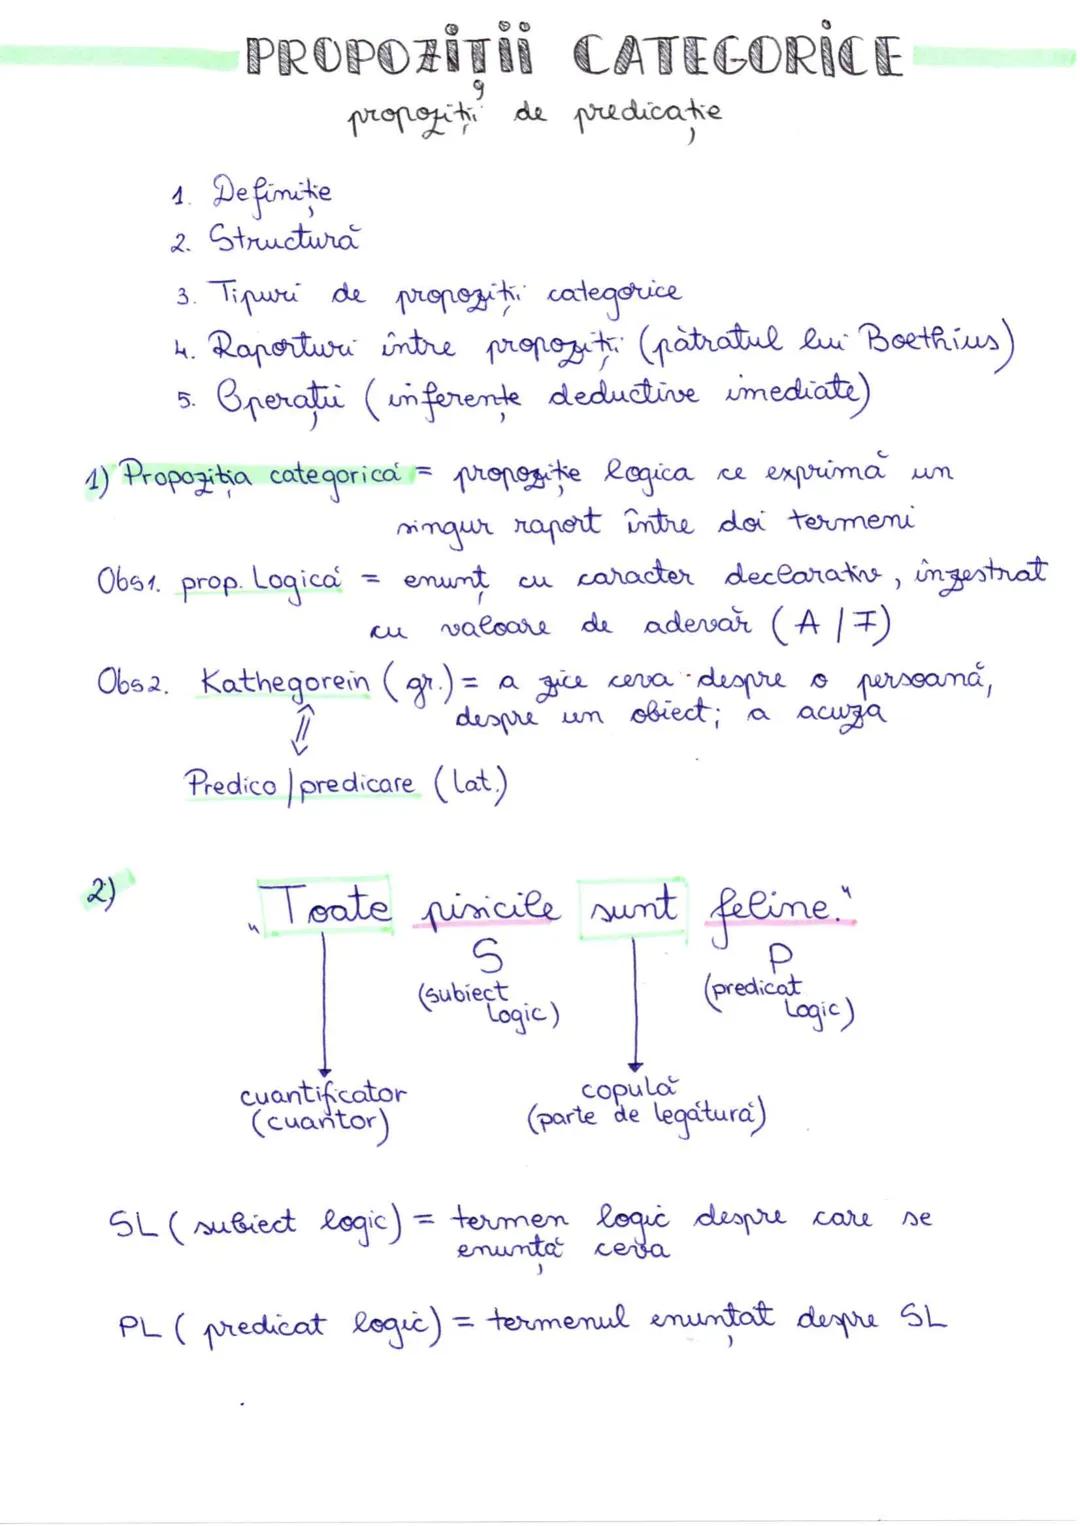 PROPOZIȚII CATEGORICE
propoziții de predicație
1. Definiție
2. Structură
3. Tipuri de propoziții categorice
4. Raporturi între propoziții (pătratul lui Boethius)
5. Operații (inferențe deductive imediate)
1) Propoziția categorică = propoziție logica ce exprimă un
singur raport între doi termeni
Obs1. prop. Logică = enunț cu caracter declarativ, înzestrat
cu valoare de adevăr (A / F)
Obs2. Kathegorein (gr.) = a zice ceva despre o persoană,
despre un obiect; a acuza
⇕
Predico / predicare (lat.)
2)
„Toate pisicile sunt feline."
S P
(subiect logic) (predicat logic)
cuantificator copulă
(cuantor) (parte de legătură)
SL (subiect logic) = termen logic despre care se
enunță ceva
PL (predicat logic) = termenul enunțat despre SL